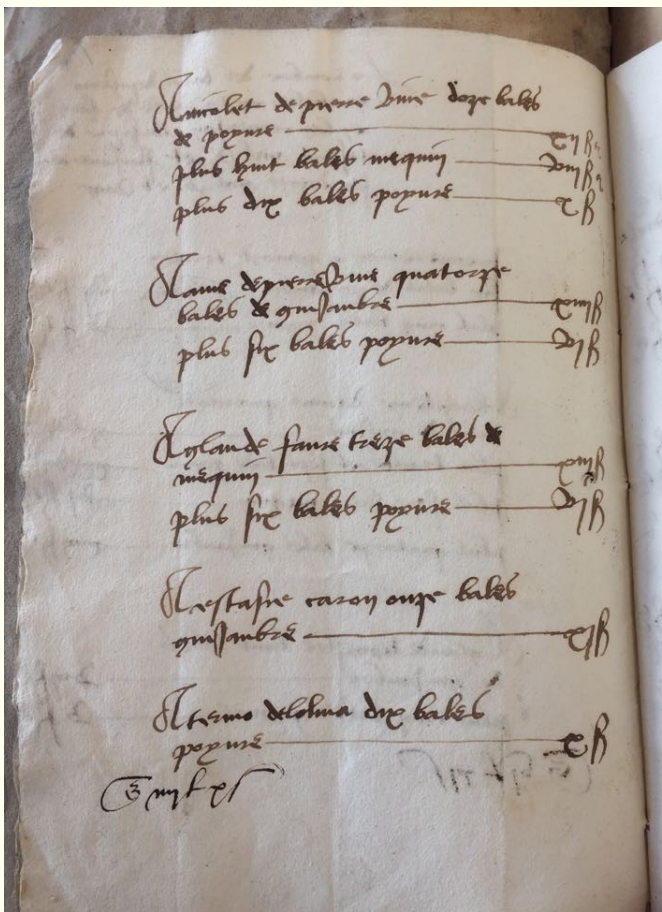 A nicolet de pierre vive doze bales
de poyvre xii ß
plus huit bales mequin viii ß
plus dix bales poyvre x ß
A ame de pierre vive quatorze
bales de ginjanbre xiiii ß
plus six bales poyvre vi ß
A glaude faure treze bales de
mequin xiii ß
plus six bales poyvre vi ß
A estasie caron onze bales
ginjanbre xi ß
A termo delolma dix bales
poyvre x ß
iiii l x s